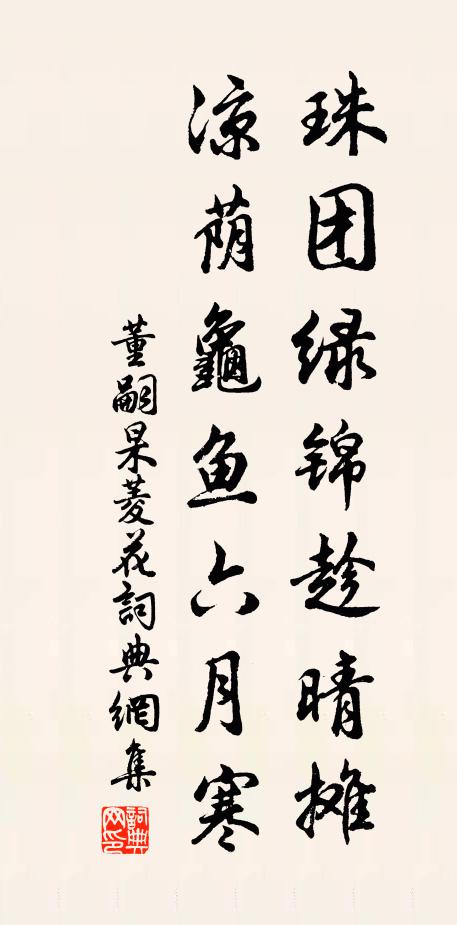 珠团绿锦趁晴摊
凉荫龜鱼六月寒
董嗣杲菱花詞典網集
詞典網印